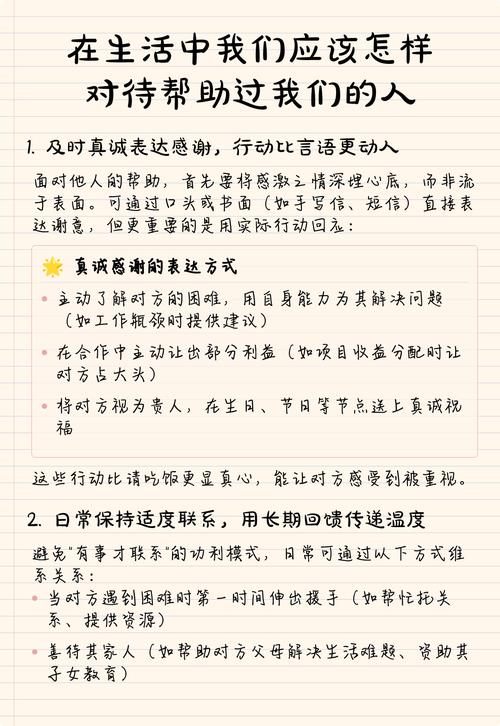 在生活中我们应该怎样
对待帮助过我们的人
1. 及时真诚表达感谢，行动比言语更动人
面对他人的帮助，首先要将感激之情深埋心底，而非流
于表面。可通过口头或书面（如手写信、短信）直接表
达谢意，但更重要的是用实际行动回应：
🌟 真诚感谢的表达方式
• 主动了解对方的困难，用自身能力为其解决问题
（如工作瓶颈时提供建议）
• 在合作中主动让出部分利益（如项目收益分配时让
对方占大头）
• 将对方视为贵人，在生日、节日等节点送上真诚祝
福
这些行动比请吃饭更显真心，能让对方感受到被重视。
2. 日常保持适度联系，用长期回馈传递温度
避免"有事才联系"的功利模式，日常可通过以下方式维
系关系：
• 当对方遇到困难时第一时间伸出援手（如帮忙托关
系、提供资源）
• 善待其家人（如帮助对方父母解决生活难题、资助其
子女教育）